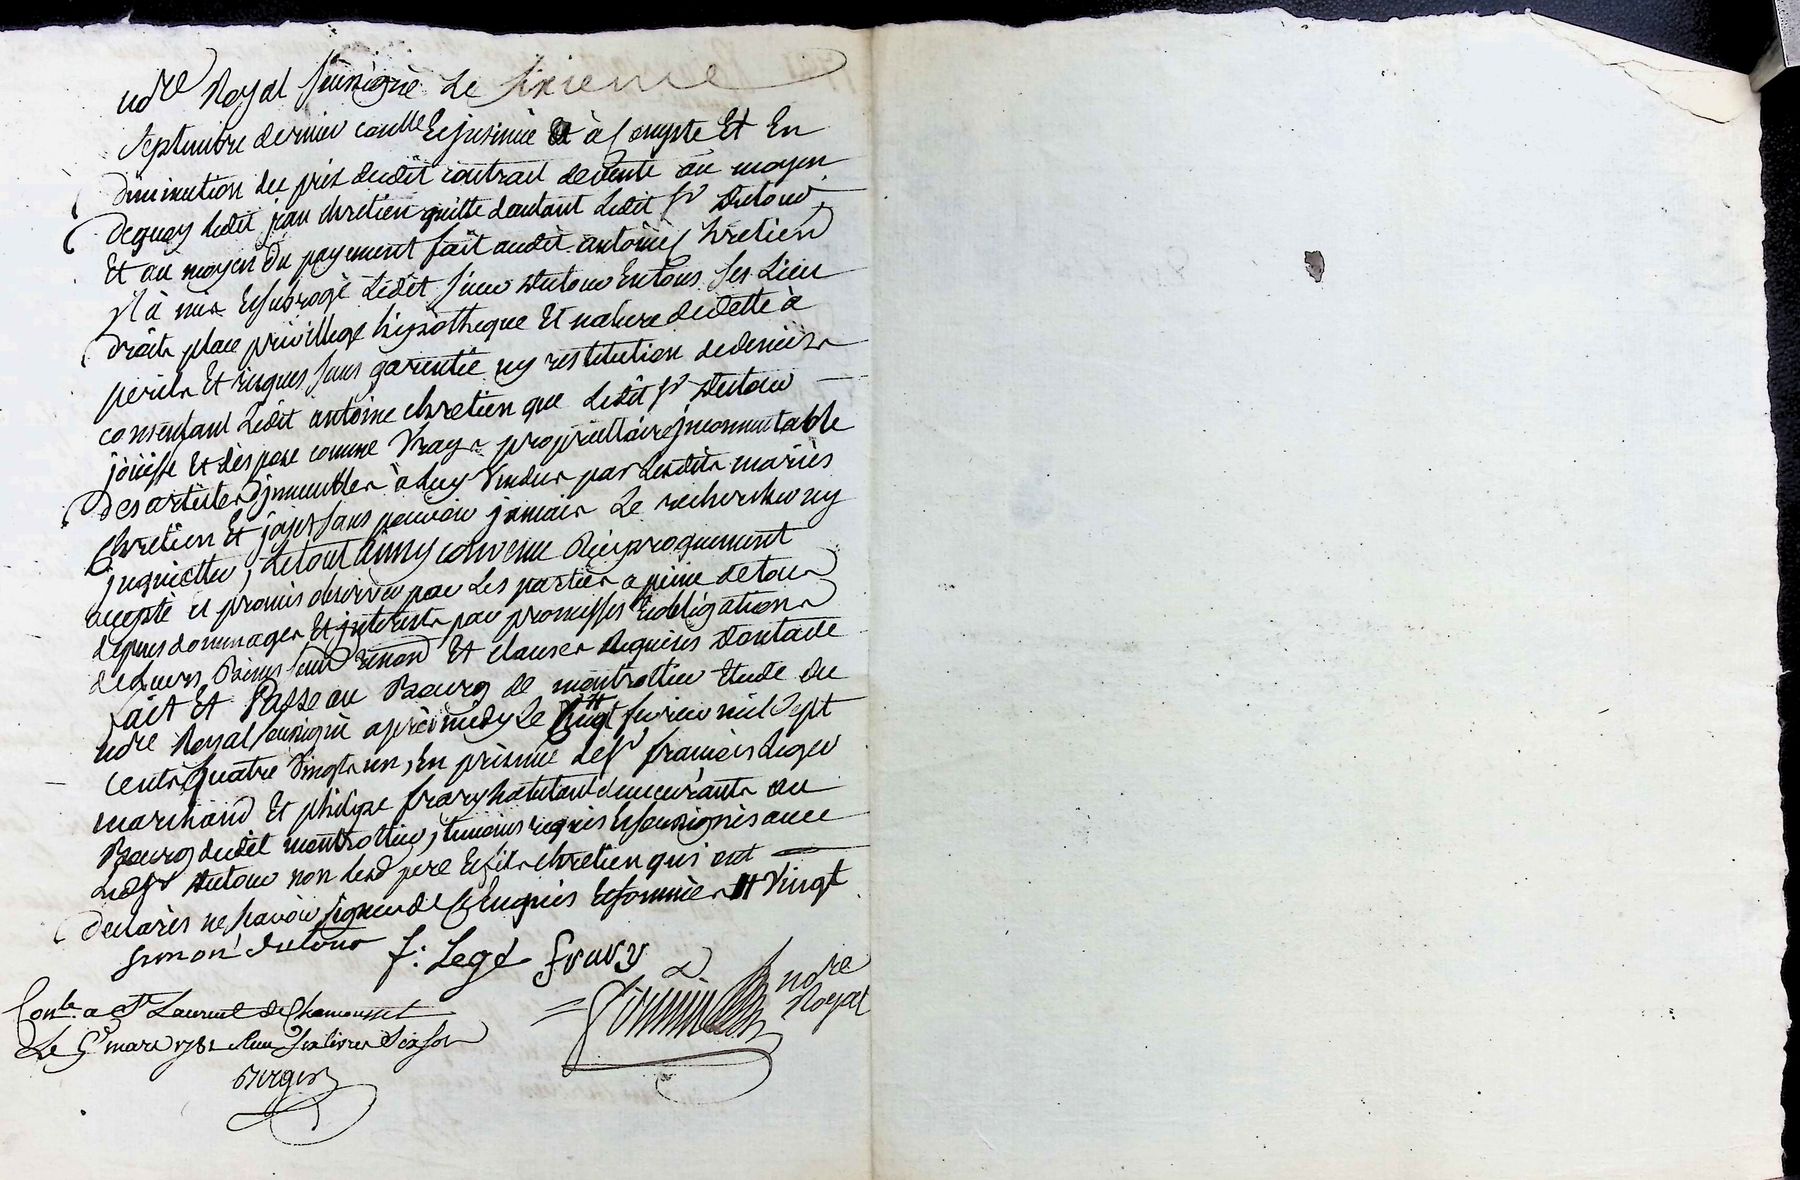 ndre Royal soussigné Le sixieme
septembre dernier conllé Et jnsinué Et à Compte Et En
diminution du prix dudit contract de vente au moyen
dequoy ledit jean chretien quitte dautant Ledit Sr Dutour
Et au moyen du payement fait audit antoine Chretien
jl à mis Et subrogé Ledit sieur Dutour En tous ses Lieu
droits place privillege hypotheque Et nature de dette à
perils Et risques sans garentie ny restitution de deniers
consentant Ledit antoine chretien que Ledit Sr Dutour
jouisse Et dispose comme Vrays proprietaire jncommutable
des articles jmmeubles à Luy Vendus par Lesdits mariés
Chretien Et joyet sans pouvoir jamais Le rechercher ny
jnquietter, Le tout ainsy convenu Reciproquement
accepté et promis observer par Les parties a peine de tous
depens dommages Et jnterests par promesses Et obligations
de Leurs Biens soud renond Et clauses Requises Dontacte
fait Et Passé au Bourg de montrottier Etude du
ndre Royal soussigné après midy Le Vingt fevrier mil Sept
cents quatre Vingts un, En presence de Sr francois Leger
marchand Et philipe frary habitant demeurants au
Bourg dudit montrottier, temoins requis Et soussignés avec
Ledt Sr Dutour non Lesd pere Et fils chretien qui ont
declarés ne scavoir signer de ce Enquis Et sommés Vingt
simon dutour f: Legé fravy
ndre Royal
Conlé a St Laurent de Chamousset
Le 5e mars 1781 Reçu Six livres dix sols
Berger